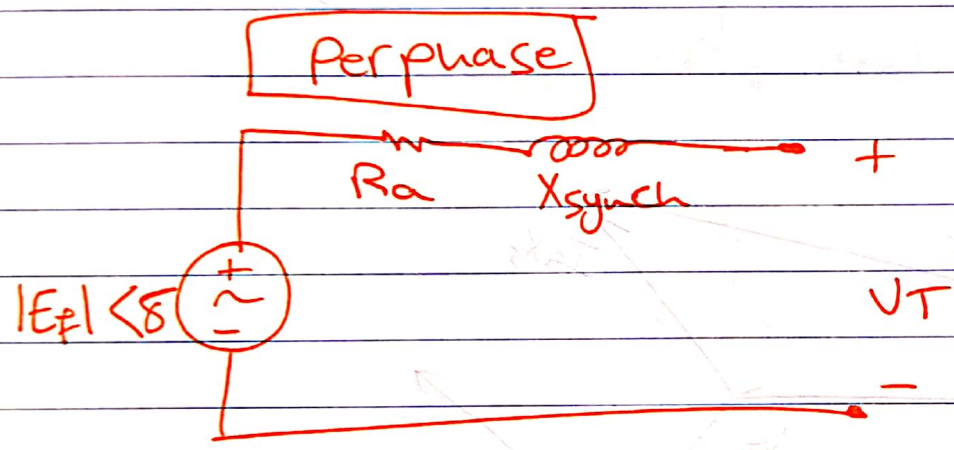 Perphase
Ra
Xsynch
+
+
~
−
|Ef| <δ
VT
−